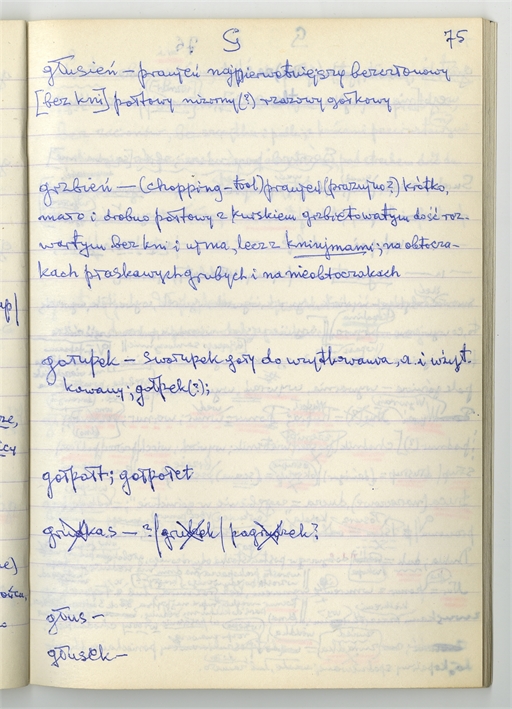 G 75
głusień – pranżeń najpierwotniejszy bezczłonowy
[bez kni] połtowy nizorny(?) rzazowy gołkowy
grzbień — (chopping-tool) pranżeń (prażyno?) krótko,
mało i drobno połtowy z kurskiem grzbietowatym dość roz-
wartym bez kni i ujma, lecz z kniujmami; na obtocza-
kach płaskawych grubych i na nieobtoczakach
gołupek – swołupek goły do użytkowania, a i użyt-
kowany; gołpek(?);
gołpałt; gołpołet
– ?/
głus –
głusek –